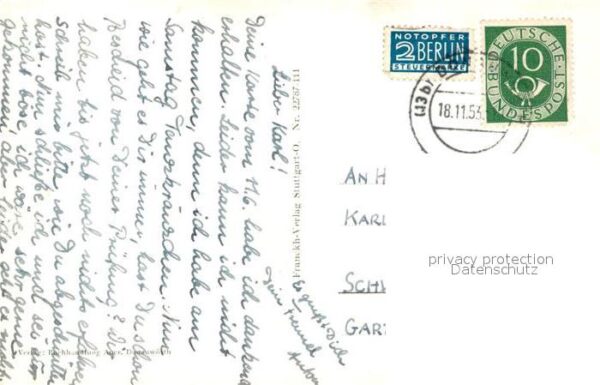 Lieber Karl!
Deine Karte vom 11.6. habe ich dankend
erhalten. Leider kann ich nicht
kommen, denn ich habe am
Samstag Tanzkränzchen. Nun
wie geht es Dir immer, hast Du schon
Bescheid von Deiner Prüfung? Die
haben bis jetzt noch nichts
schreib mir bitte, wie Du abgeschnitten
hast. Nun schließe ich und sei mir
nicht böse, ich wäre sehr gerne
gekommen aber leider geht es nicht.
Es grüßt Dich
Dein Freund
Anton
Franckh-Verlag Stuttgart-O. Nr. 22787 111
Verlag: Buchhandlung Auer, Donauwörth
NOTOPFER
2 BERLIN
STEUERMARKE
DEUTSCHE BUNDESPOST
10
(13b)
18.11.53
AN H
KARL
SCHW
GART
privacy protection
Datenschutz